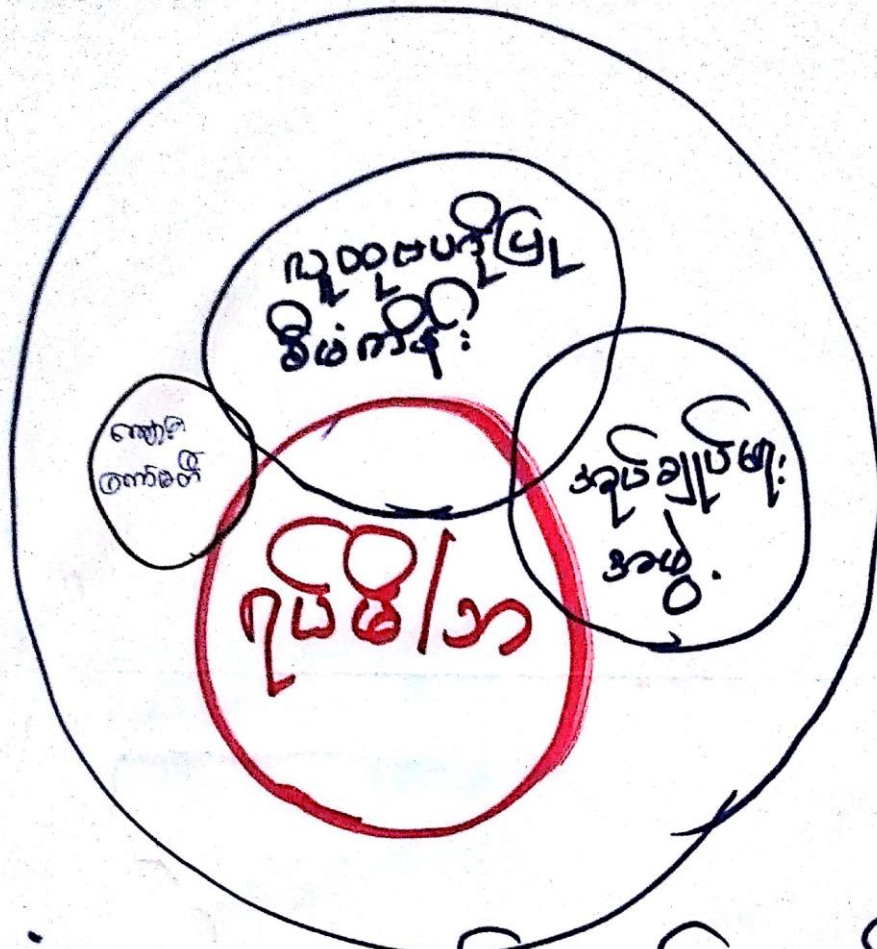 လူထုဗဟိုပြု
စီမံကိန်း
ကျောင်း
ကော်မတီ
အုပ်ချုပ်ရေး
အဖွဲ့.
ရပ်မိ/ဘ